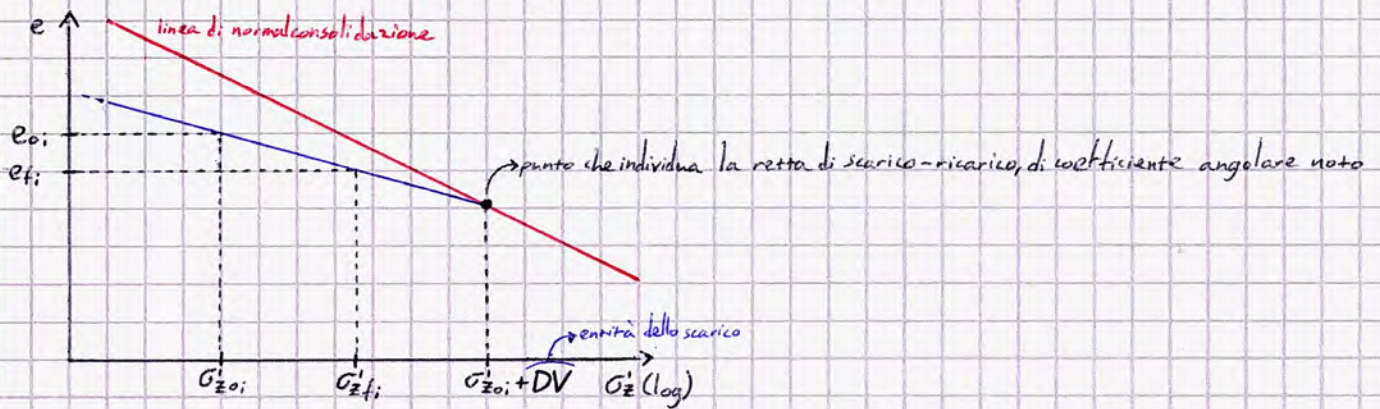 e
linea di normalconsolidazione
e₀ᵢ
e_fᵢ
punto che individua la retta di scarico-ricarico, di coefficiente angolare noto
entità dello scarico
σ'z₀ᵢ
σ'z_fᵢ
σ'z₀ᵢ + DV
σ'z (log)